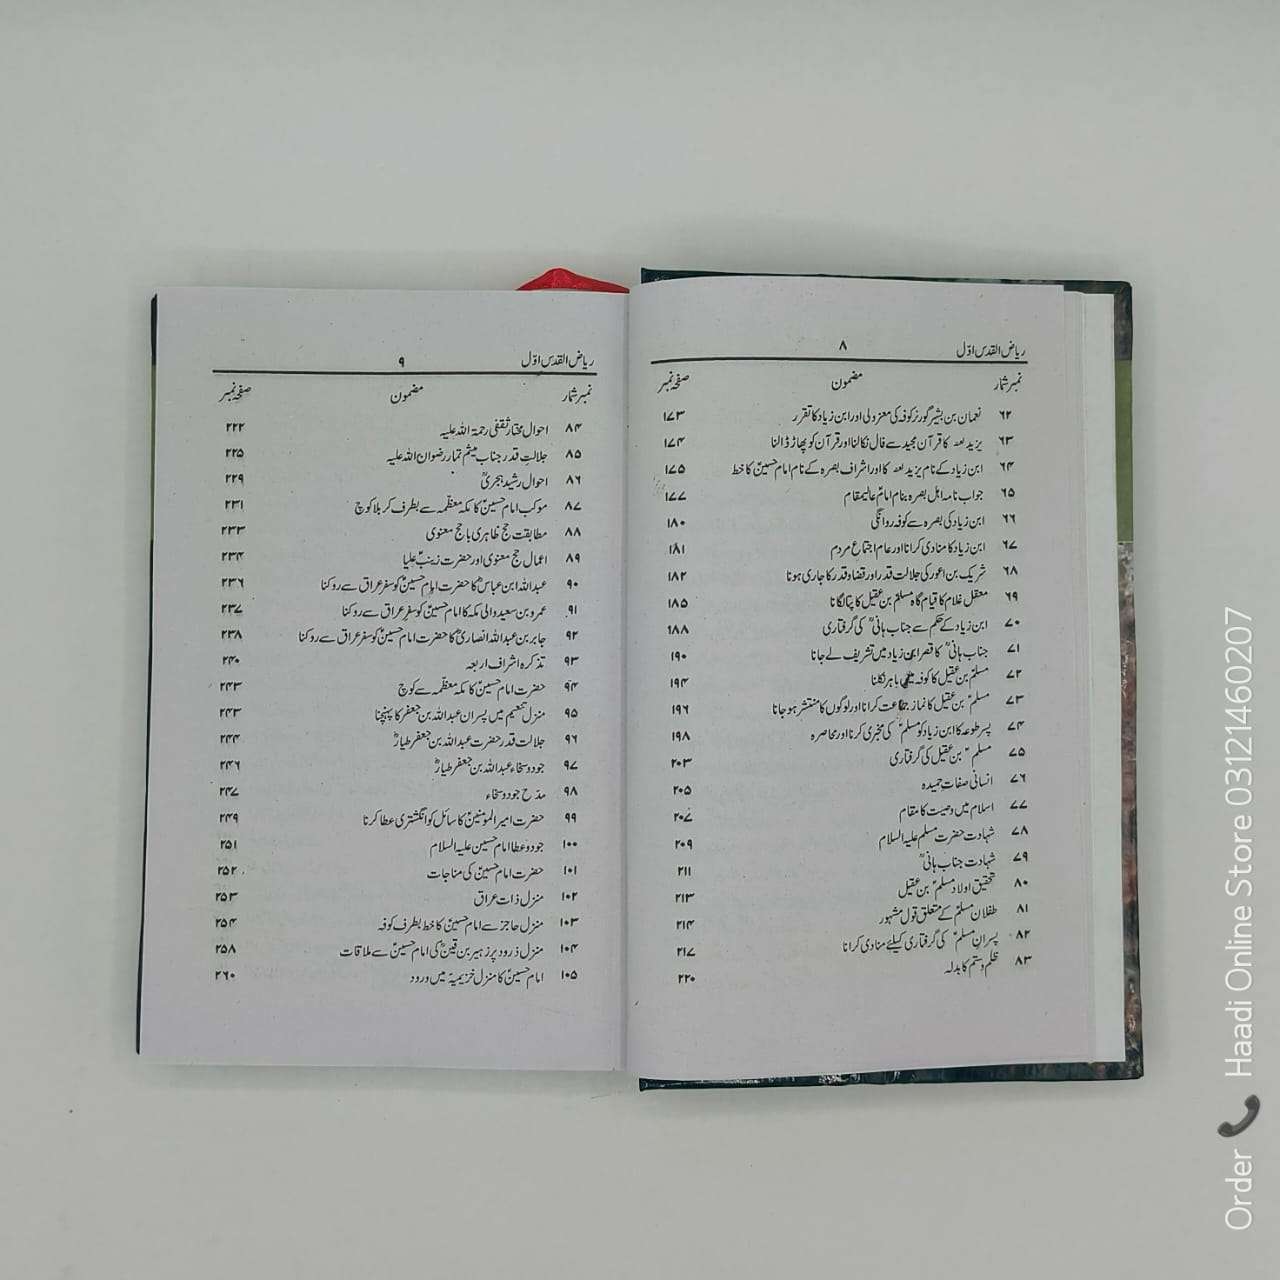 ریاض القدس اوّل ۸
نمبر شمار مضمون صفحہ نمبر
۶۲ نعمان بن بشیر گورنر کوفہ کی معزولی اور ابن زیاد کا تقرر ۱۷۳
۶۳ یزید لعہ کا قرآن مجید سے فال نکالنا اور قرآن کو پھاڑ ڈالنا ۱۷۴
۶۴ ابن زیاد کے نام یزید لعہ کا اور اشراف بصرہ کے نام امام حسینؑ کا خط ۱۷۵
۶۵ جواب نامہ اہل بصرہ بنام امامؑ عالیمقام ۱۷۷
۶۶ ابن زیاد کی بصرہ سے کوفہ روانگی ۱۸۰
۶۷ ابن زیاد کا منادی کرانا اور عام اجتماع مردم ۱۸۱
۶۸ شریک بن اعور کی جلالت قدر اور قضا و قدر کا جاری ہونا ۱۸۲
۶۹ معقل غلام کا قیام گاہ مسلمؑ بن عقیل کا پتا لگانا ۱۸۵
۷۰ ابن زیاد کے حکم سے جناب ہانیؓ کی گرفتاری ۱۸۸
۷۱ جناب ہانیؓ کا قصر ابن زیاد میں تشریف لے جانا ۱۹۰
۷۲ مسلمؑ بن عقیل کا کوفہ میں باہر نکلنا ۱۹۴
۷۳ مسلمؑ بن عقیل کا نماز جماعت کرانا اور لوگوں کا منتشر ہو جانا ۱۹۶
۷۴ پسر طوعہ کا ابن زیاد کو مسلمؑ کی مخبری کرنا اور محاصرہ ۱۹۸
۷۵ مسلمؑ بن عقیل کی گرفتاری ۲۰۳
۷۶ انسانی صفات حمیدہ ۲۰۵
۷۷ اسلام میں وصیت کا مقام ۲۰۷
۷۸ شہادت حضرت مسلم علیہ السلام ۲۰۹
۷۹ شہادت جناب ہانیؓ ۲۱۱
۸۰ تحقیق اولاد مسلمؑ بن عقیل ۲۱۳
۸۱ طفلان مسلمؑ کے متعلق قول مشہور ۲۱۴
۸۲ پسران مسلمؑ کی گرفتاری کیلئے منادی کرانا ۲۱۷
۸۳ ظلم و ستم کا بدلہ ۲۲۰
ریاض القدس اوّل ۹
نمبر شمار مضمون صفحہ نمبر
۸۴ احوال مختار ثقفی رحمۃ اللہ علیہ ۲۲۲
۸۵ جلالتِ قدر جناب میثم تمار رضوان اللہ علیہ ۲۲۵
۸۶ احوال رشید ہجریؓ ۲۲۹
۸۷ موکب امام حسینؑ کا مکہ معظّمہ سے بطرف کربلا کوچ ۲۳۱
۸۸ مطابقت حج ظاہری با حج معنوی ۲۳۳
۸۹ اعمال حج معنوی اور حضرت زینبؑ علیا ۲۳۴
۹۰ عبداللہ ابن عباسؓ کا حضرت امام حسینؑ کو سفر عراق سے روکنا ۲۳۶
۹۱ عمرو بن سعید والی مکہ کا امام حسینؑ کو سفرِ عراق سے روکنا ۲۳۷
۹۲ جابر بن عبداللہ انصاریؓ کا حضرت امام حسینؑ کو سفر عراق سے روکنا ۲۳۸
۹۳ تذکرہ اشراف اربعہ ۲۴۰
۹۴ حضرت امام حسینؑ کا مکہ معظّمہ سے کوچ ۲۴۳
۹۵ منزل تنعیم میں پسران عبداللہ بن جعفر کا پہنچنا ۲۴۳
۹۶ جلالت قدر حضرت عبداللہ بن جعفر طیارؓ ۲۴۴
۹۷ جود و سخاء عبداللہ بن جعفر طیارؓ ۲۴۶
۹۸ مدح جود و سخاء ۲۴۷
۹۹ حضرت امیر المؤمنینؑ کا سائل کو انگشتری عطا کرنا ۲۴۹
۱۰۰ جود و عطا امام حسین علیہ السلام ۲۵۱
۱۰۱ حضرت امام حسینؑ کی مناجات ۲۵۲
۱۰۲ منزل ذات عراق ۲۵۳
۱۰۳ منزل حاجز سے امام حسینؑ کا خط بطرف کوفہ ۲۵۴
۱۰۴ منزل ذرود پر زہیر بن قینؓ کی امام حسینؑ سے ملاقات ۲۵۸
۱۰۵ امام حسینؑ کا منزل خزیمیہ میں ورود ۲۶۰
Order Haadi Online Store 03121460207